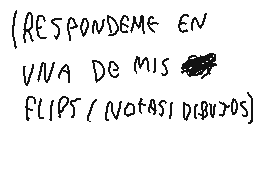 (RESPONDEME EN
UNA DE MIS
FLIPS/NOTAS/DIBUJOS)